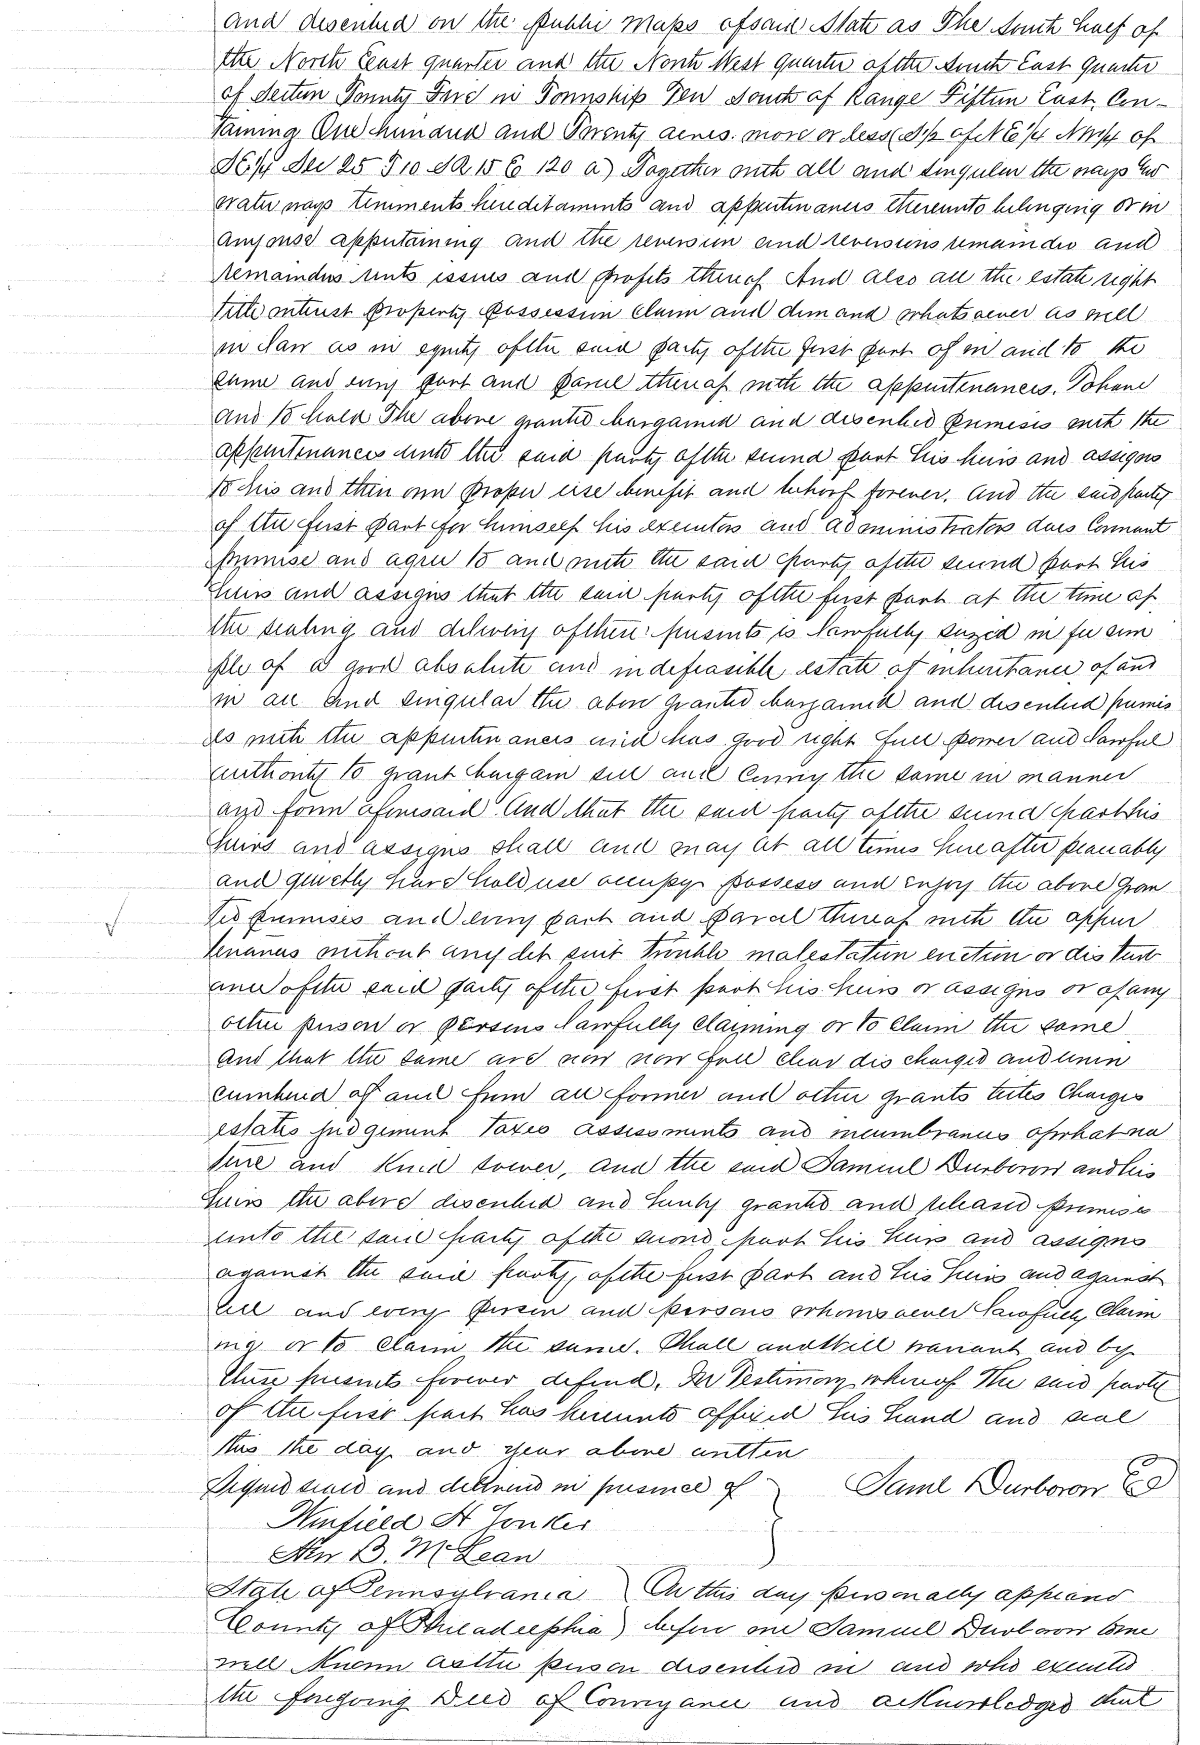 and described on the public maps of said State as The South half of
the North East quarter and the North West quarter of the South East quarter
of Section Twenty Five in Township Ten South of Range Fifteen East, Con-
taining One hundred and Twenty acres. more or less (S½ of NE¼ NW¼ of
SE¼ Sec 25 T10 S R 15 E 120 a) Together with all and singular the ways
water ways tenements hereditaments and appurtenances thereunto belonging or in
anywise appurtaining and the reversion and reversions remainder and
remainders rents issues and profits thereof And also all the estate right
title interest property possession claim and demand whatsoever as well
in law as in equity of the said party of the first part of in and to the
same and every part and parcel thereof with the appurtenances. To have
and to hold The above granted bargained and described premises with the
appurtenances unto the said party of the second part his heirs and assigns
to his and their own proper use benefit and behoof forever. And the said party
of the first part for himself his executors and administrators does Covenant
promise and agree to and with the said party of the second part his
heirs and assigns that the said party of the first part at the time of
the sealing and delivery of these presents is lawfully seized in fee sim
ple of a good absolute and indefeasible estate of inheritance of and
in all and singular the above granted bargained and described premis
es with the appurtenances and has good right full power and lawful
authority to grant bargain sell and convey the same in manner
and form aforesaid And that the said party of the second part his
heirs and assigns shall and may at all times hereafter peaceably
and quietly have hold use occupy possess and enjoy the above gran
ted premises and every part and parcel thereof with the appur
tenances without any let suit trouble malestation eviction or disturb
ance of the said party of the first part his heirs or assigns or of any
other person or persons lawfully claiming or to claim the same
And that the same are now now free clear discharged and unin
cumbered of and from all former and other grants titles charges
estates judgement taxes assessments and incumbrances of what na
ture and kind soever, and the said Samuel Durborow and his
heirs the above described and hereby granted and released premises
unto the said party of the second part his heirs and assigns
against the said party of the first part and his heirs and against
all and every person and persons whomsoever lawfully claim
ing or to claim the same. Shall and Will warrant and by
these presents forever defend. In Testimony whereof The said party
of the first part has hereunto affixed his hand and seal
this the day and year above written
Signed sealed and delivered in presence of } Saml Durborow
Winfield H Yonker
B. McLean
State of Pennsylvania ) On this day personally appeared
County of Philadelphia ) before me Samuel Durborow to me
well Known as the person described in and who executed
the foregoing Deed of Conveyance and acknowledged that